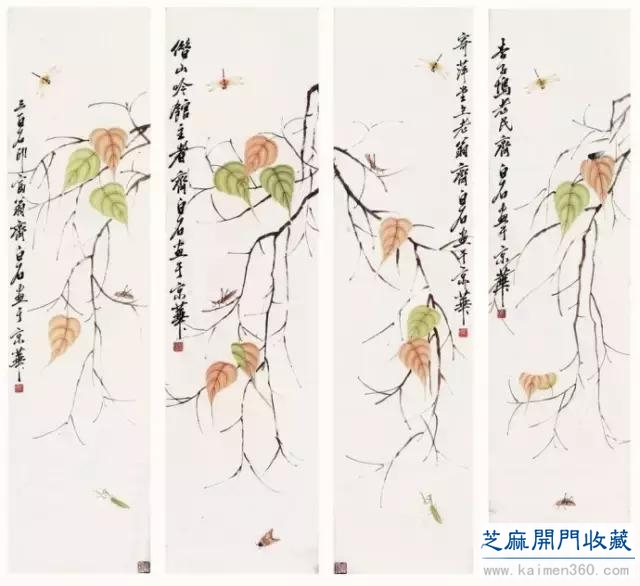 三百石印富翁齊白石画于京華
借山吟館主者齊白石画于京華
寄萍堂上老翁齊白石画于京華
杏子塢老民齊白石画于京華
芝麻開門收藏
www.kaimen360.com